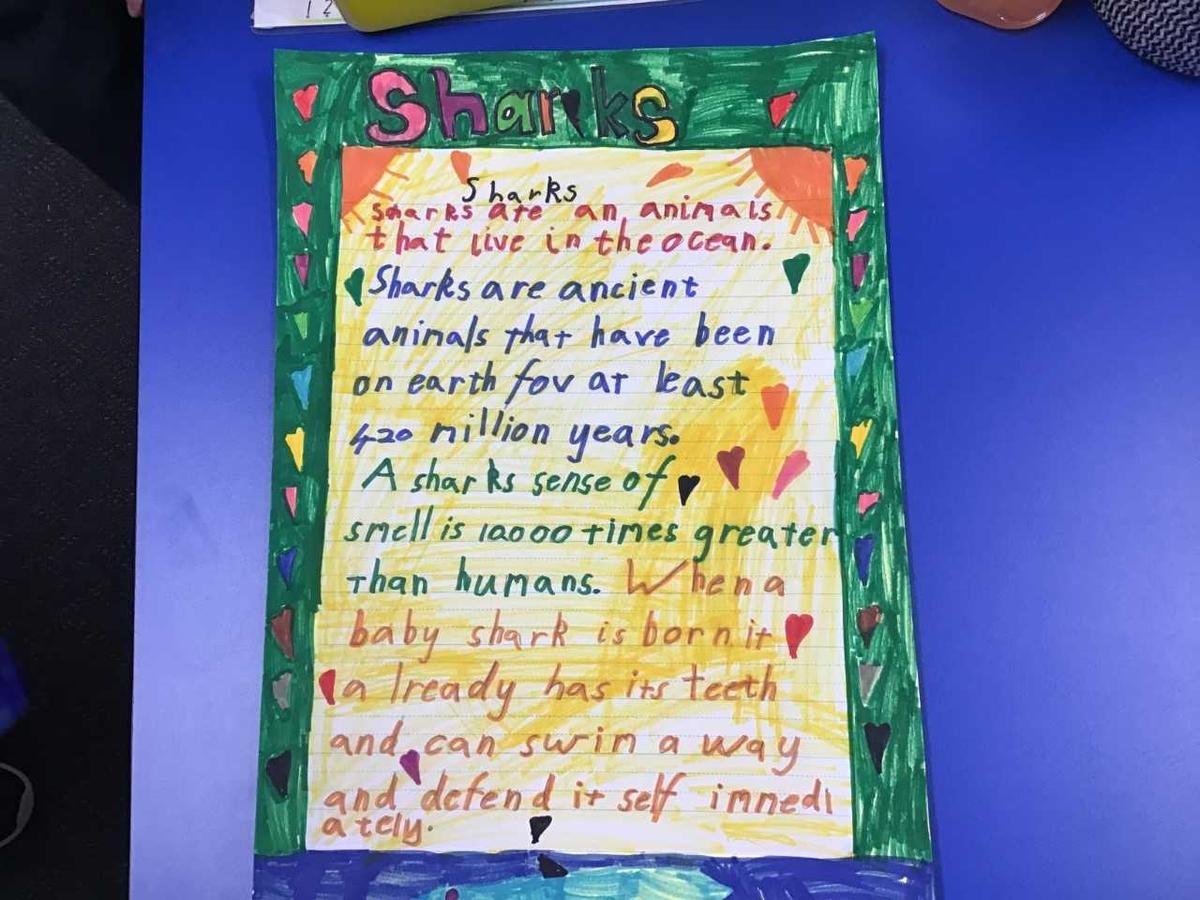 1 2
Sharks
Sharks
Sharks are an animals
that live in the ocean.
Sharks are ancient
animals that have been
on earth for at least
420 million years.
A sharks sense of
smell is 10000 times greater
than humans. When a
baby shark is born it
a lready has its teeth
and can swim a way
and defend it self immedi
ately.